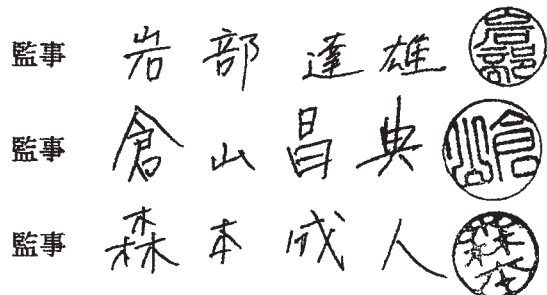 監事 岩部達雄 岩部
監事 倉山昌典 倉山
監事 森本成人 森本